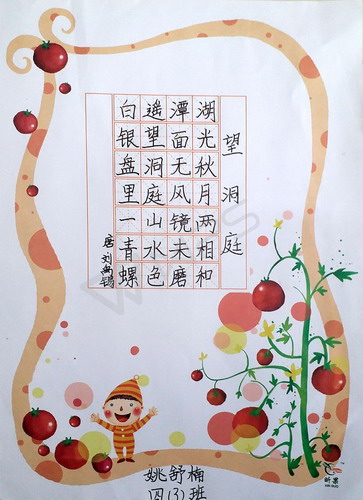 望洞庭
湖光秋月两相和
潭面无风镜未磨
遥望洞庭山水色
白银盘里一青螺
唐刘禹锡
姚舒楠
四(3)班
昕果
XIN GUO